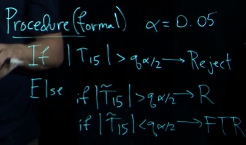 Procedure (formal) α = 0.05
If |T₁₅| > q_α/2 → Reject
Else if |T̃₁₅| > q_α/2 → R
if |T̃₁₅| < q_α/2 → FTR